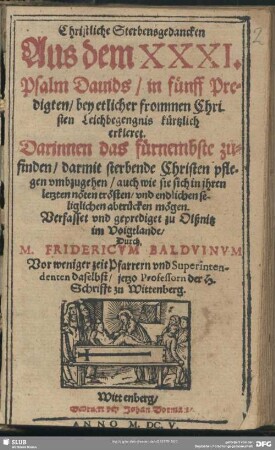 2
Christliche Sterbensgedancken
Aus dem XXXI.
Psalm Dauids / in fünff Pre-
digten / bey etlicher frommen Chri-
sten Leichbegengnis kürtzlich
erkleret.
Darinnen das fürnembste zu-
finden / darmit sterbende Christen pfle-
gen vmbzugehen / auch wie sie sich in ihren
letzten nöten trösten / vnd endlichen se-
liglichen abtrücken mögen.
Verfasset vnd geprediget zu Olßnitz
im Voigtlande /
Durch
M. FRIDERICVM BALDVINVM
Vor weniger zeit Pfarrern vnd Superinten-
denten daselbst / jetzo Professorn der H.
Schrifft zu Wittenberg.
Wittenberg /
Gedruckt bey Johan
ANNO M. DC. V.
SLUB